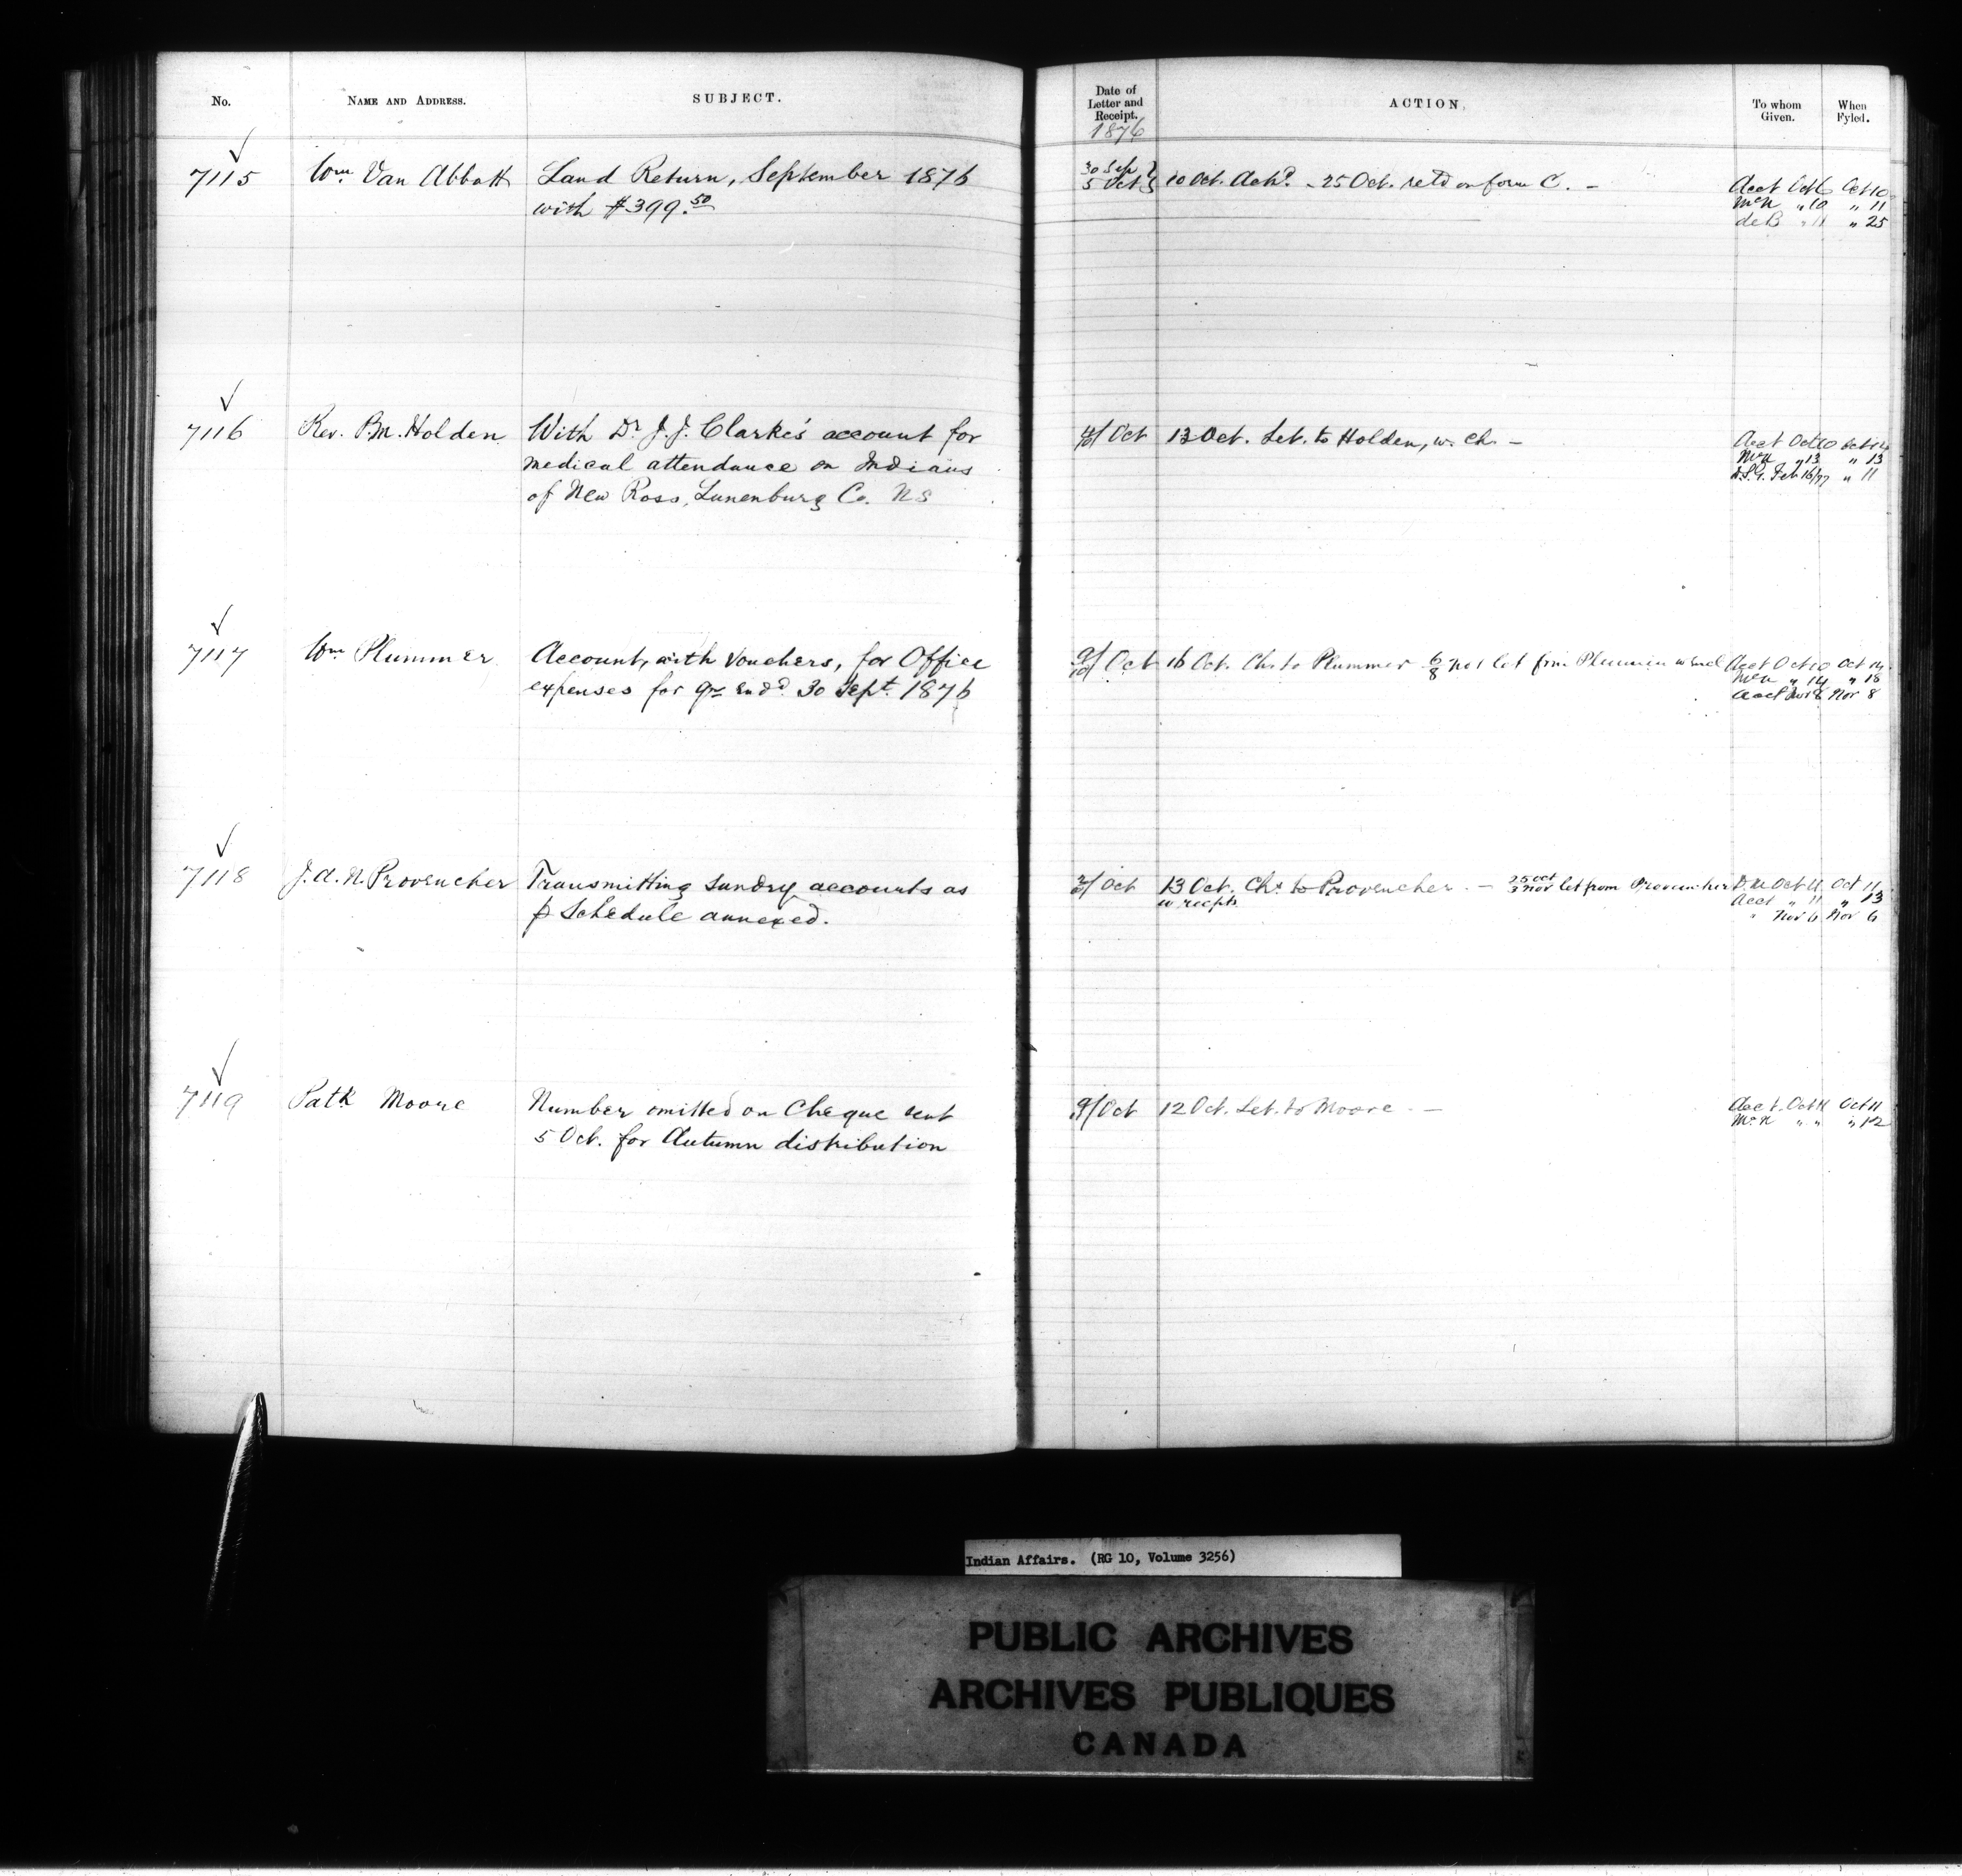 No. NAME AND ADDRESS. SUBJECT. Date of Letter and Receipt. ACTION. To whom Given. When Fyled.
1876
7115 Wm Van Abbott Land Return, September 1876 30 Sep 5 Oct 10 Oct. Ackd. - 25 Oct. retd on form C. - Acct Oct 6 Oct 10
with $399.50 McN " 10 " 11
deB " 11 " 25
7116 Rev. P.M. Holden With Dr J. J. Clarke's account for Oct 13 Oct. Let. to Holden, w. Ch. - Acct Oct 10
medical attendance on Indians McN " 13 " 13
of New Ross, Lunenburg Co. NS D.S.G. Feb 16/77 " 11
7117 Wm Plummer Account, with Vouchers, for Office 9/10 Oct 16 Oct. Ch. to Plummer 6/8 Nov let from Plummer w encl Acct Oct 10 Oct 14
expenses for qr endd 30 Sept. 1876 McN " 14 " 18
Acct Nov 8 Nov 8
7118 J.A.N. Provencher Transmitting Sundry accounts as Oct 13 Oct. Chs to Provencher - 25 Oct 3 Nov let from Provencher D.M Oct 11 Oct 11
p Schedule annexed. w recpts Acct " 11 " 13
" Nov 6 Nov 6
7119 Patk Moore Number omitted on Cheque sent 9/ Oct 12 Oct. Let. to Moore - Acct. Oct 11 Oct 11
5 Oct. for Autumn distribution McN " " " 12
Indian Affairs. (RG 10, Volume 3256)
PUBLIC ARCHIVES
ARCHIVES PUBLIQUES
CANADA